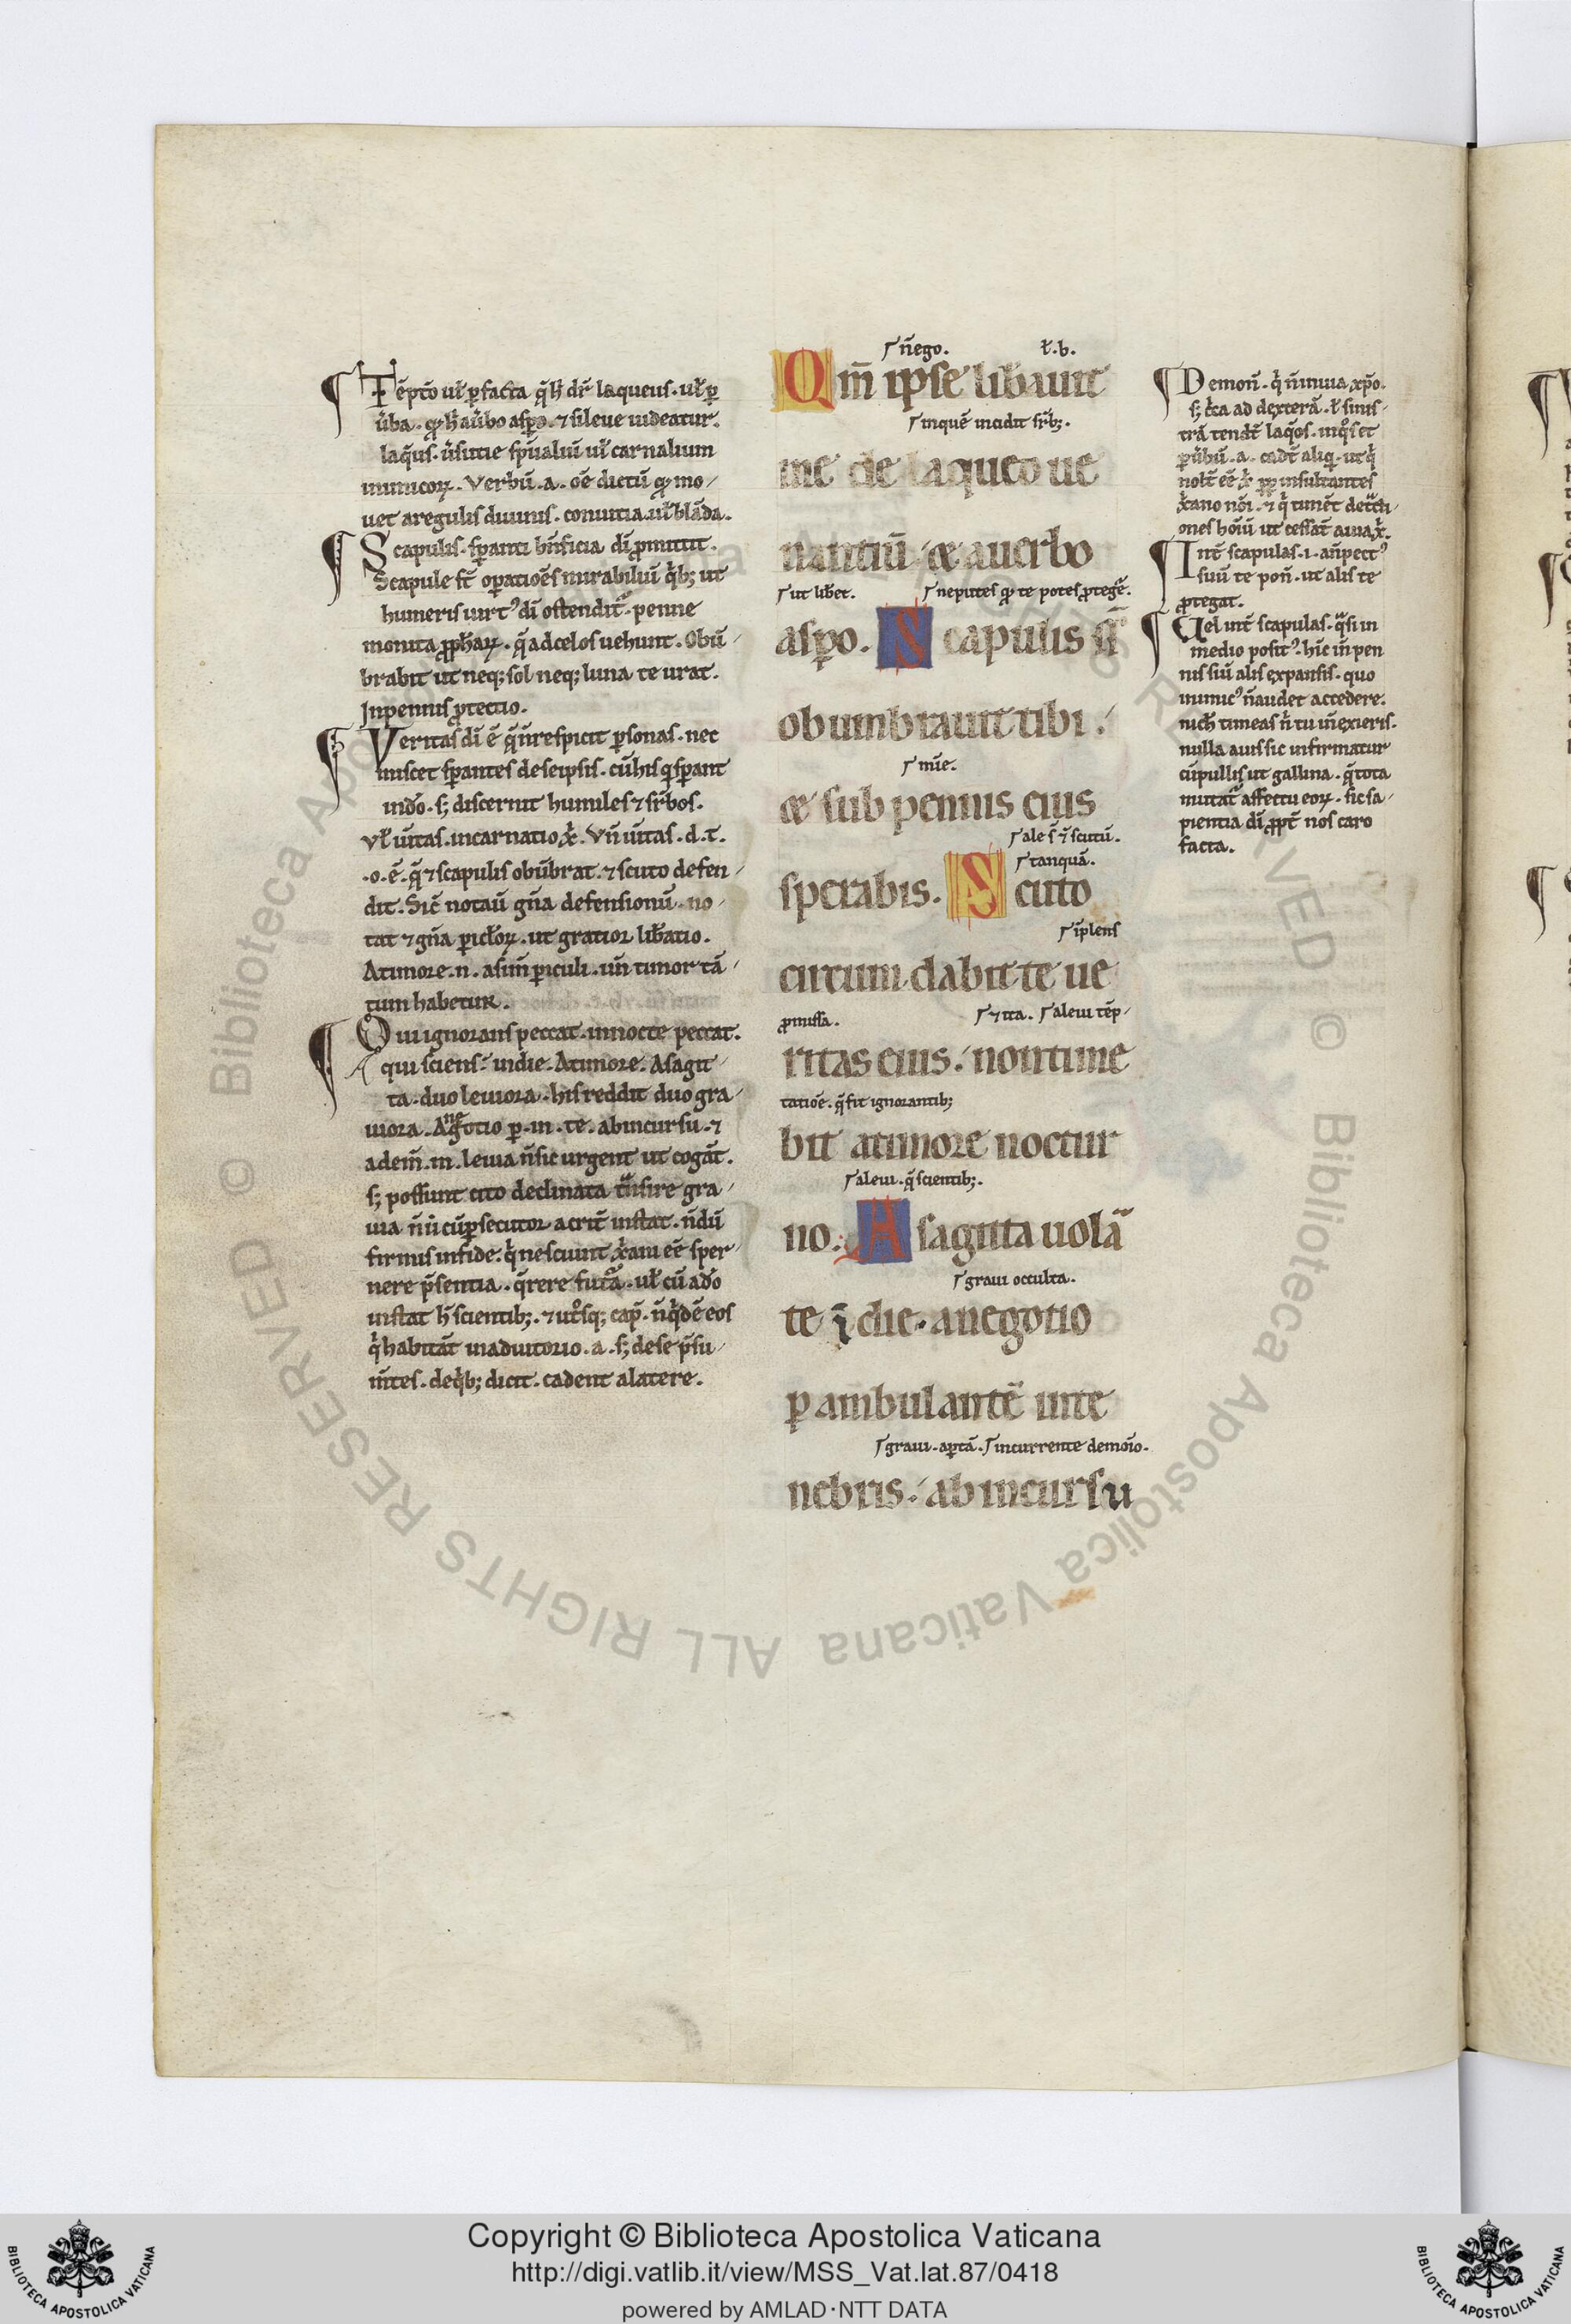 Tēpt̄o ul̄ ꝑfacta q̄ h̄ dr̄ laqueus. ul̄ ꝑ
ūba. ꝙ h̄ aūbo asꝑo. ⁊ si leue uideatur.
laq̄us. ūsutie sp̄ualiū ul̄ carnalium
inimicoꝝ. Verbū. a. oē dictū ꝙ mo
uet aregulis diuinis. conuitia. ul̄ blāda.
Scapulis. sꝑanti bn̄ficia dī ꝓmittit.
Scapule st̄ oꝑatiōes mirabiliū q̄b; ut
humeris uirt᾽ dī ostendit̄. penne
monita ꝓph̄aꝝ. q̄ adcelos uehunt. Obū
brabit ut neq; sol neq; luna te urat.
In pennis ꝓtectio.
Veritas dī ē q̄ n̄ respicit ꝑsonas. nec
miscet sꝑantes deseipsis. cū his q sꝑant
indo. s; discernit humiles ⁊ sr̄bos.
Vl̄ ūitas. incarnatio x̄. Vn̄ ūitas. d. t.
o. ē. q̄ ⁊ scapulis obūbrat. ⁊ scuto defen
dit. Sic̄ notaū gn̄a defensionū. no
tat ⁊ gn̄a ꝑicl̄oꝝ. ut gratior lib̄atio.
Atimore. n. asim̄ ꝑiculi. un̄ timor tā
tum habetur.
Qui ignorans peccat. innocte peccat.
qui sciens. indie. Atimore. Asagit
ta. duo leuiora. his reddit duo gra
uiora. Anegotio ꝑ. in. te. abincursu. ⁊
adem̄. m. leuia n̄ sic urgent ut cogāt.
s; possunt cito declinata
firmus infide. q̄ nesciunt x̄ani eē sper
nere p̄sentia. q̄rere futᷓa. ul̄ cū ad̄o
instat h̄ scientib;.
q̄ habitāt inadiutorio. a. s; dese p̄su
m̄tes. deq̄b; dicit. cadent alatere.
n̄ ego. ł. b.
Qm̄ ipse lib̄auit
inquē incidit sr̄b;.
me de laqueo ue
nantiū. ⁊ auerbo
ut lib̄et. ne putes ꝙ te potes ꝓtegē.
asꝑo. Scapulis s̄
obumbrauit tibi.
mīe.
⁊ sub pennis eius
ale s̄ ⁊ scutū.
tanquā.
sperabis. Scuto
īplens
circum dabit te ue
ꝓmissa. ⁊ ita. aleui tēp
ritas eius. non time
tatiōe. q̄ fit ignorantib;
bit atimore noctur
aleui. q̄ scientib;.
no. A sagitta uolā
graui occulta.
te ī die. anegotio
ꝑambulantē inte
graui. aꝑtā. incurrente demōio.
nebris. ab incursu
Demon̄. q̄ n̄ inuia xp̄o.
s; c̄ca ad dexterā. ł sinis
trā tendt̄ laq̄os.
ꝑ ūbū. a. cadt̄ aliq. ut q̄
nolt̄ eē x̄ ꝓp̄ insultantes
x̄ano nōi. ⁊ q̄ timēt detᷓcti
ones hoīū ut cessāt auia x̄.
Int̄ scapulas. i. an̄ pect᾽
suū te pon̄. ut alis te
ꝓtegat.
Vel int̄ scapulas. q̄si in
medio posit᾽. hic̄ in pen
nis siū alis expansis. quo
inimic᾽ n̄ audet accedere.
nich̄ timeas n̄ tu in̄ exieris.
nulla auis sic infirmatur
cū pullis ut gallina. q̄ tota
mutat̄ affectu eoꝝ. sic sa
pientia dī ꝓpt̄ nos caro
facta.
Copyright © Biblioteca Apostolica Vaticana
http://digi.vatlib.it/view/MSS_Vat.lat.87/0418
powered by AMLAD·NTT DATA
BIBLIOTECA APOSTOLICA VATICANA
BIBLIOTECA APOSTOLICA VATICANA
© Biblioteca Apostolica Vaticana ALL RIGHTS RESERVED